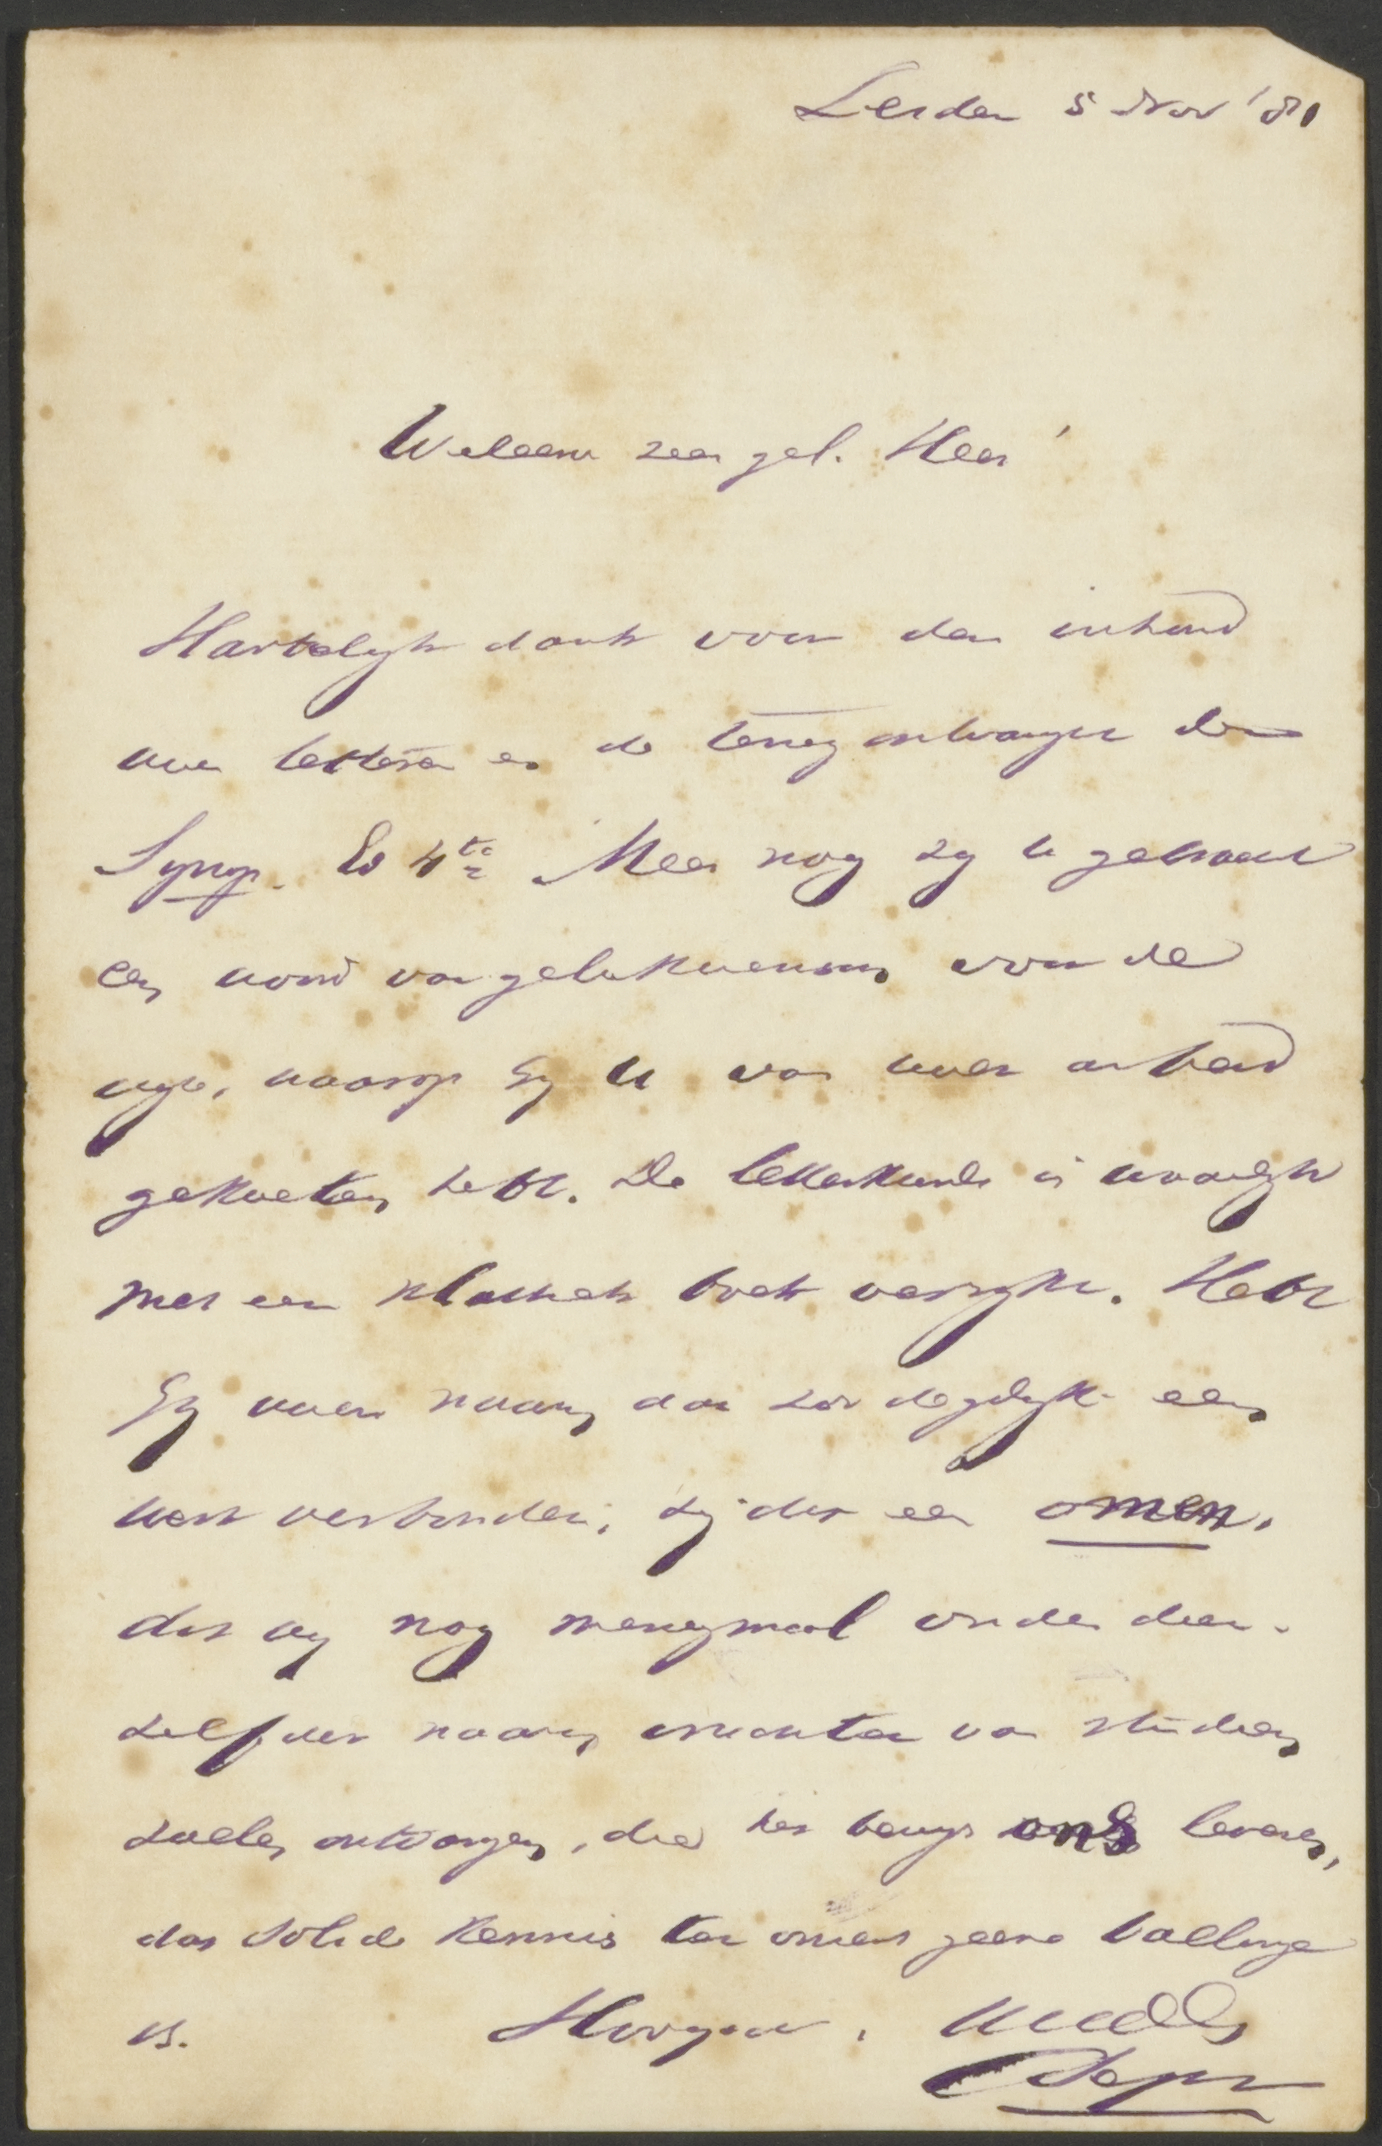 Leiden 5 Nov '81
Weledele zeer gel. Heer!
Hartelijk dank voor den inhoud
uwer letteren en de terugontvangen
Synop. Ev 4te. Meer nog zij U gebracht
een woord van gelukwensing voor de
wijze, waarop Gij U van uwen arbeid
gekweten hebt. De letterkunde is waarlijk
met een klassiek boek verrijkt. Hebt
Gij uwen naam aan zoo degelijk een
werk verbonden, zij dit een omen,
dat wij nog menigmaal onder dien-
zelfden naam vruchten van studien
zullen ontvangen, die het bewijs ons leveren,
dat solide kennis ten onzent geene ballinge
is. Hoogachtend,